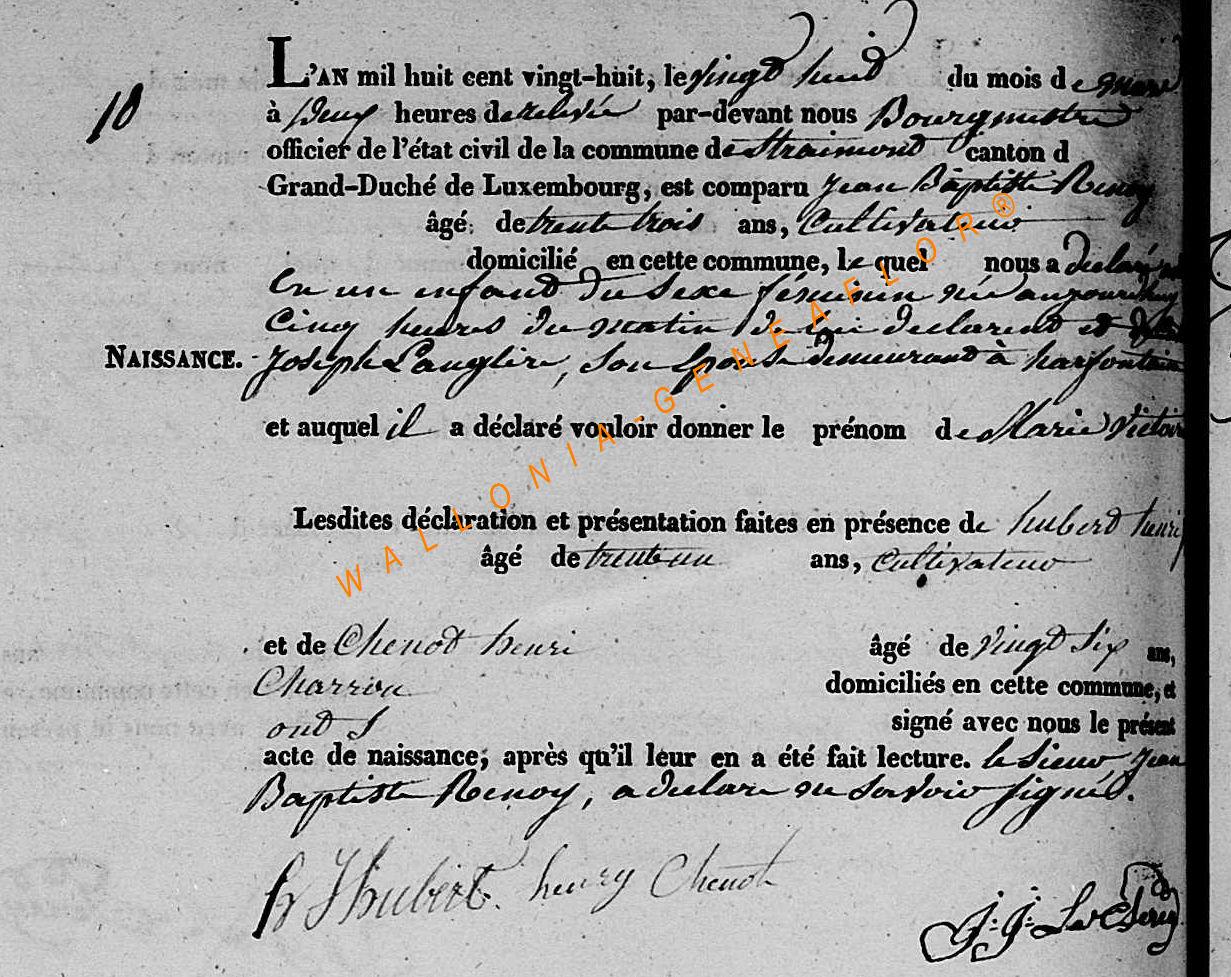 10
L'AN mil huit cent vingt-huit, le vingt huit du mois de mars
à deux heures de relevée par-devant nous Bourgmestre
officier de l'état civil de la commune de Straimont canton d
Grand-Duché de Luxembourg, est comparu Jean Baptiste Renoy
âgé de trente trois ans, Cultivateur
domicilié en cette commune, le quel nous a
un enfant du sexe féminin née aujourdhuy
Cinq heures du matin de lui declarent et
NAISSANCE. Joseph Langlire, son Epouse demeurand à
et auquel il a déclaré vouloir donner le prénom de Marie
Lesdites déclaration et présentation faites en présence de hubert
âgé de trente un ans, Cultivateur
et de Chenot henri âgé de vingt six ans,
Charron domiciliés en cette commune, et
ont signé avec nous le présent
acte de naissance, après qu'il leur en a été fait lecture. le Sieur Jean
Baptiste Renoy, a declare ne savoir signé.
hubert henry Chenot
J: J:
WALLONIA-GENEAFLOR®